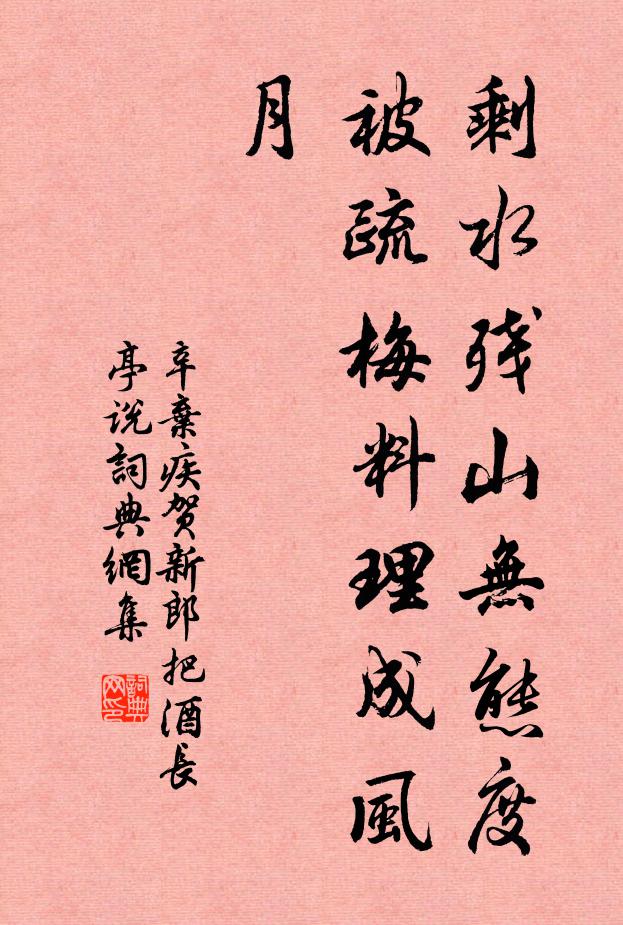 剩水残山無態度
被疏梅料理成風
月
辛棄疾賀新郎把酒長
亭说詞典網集
詞典
网印